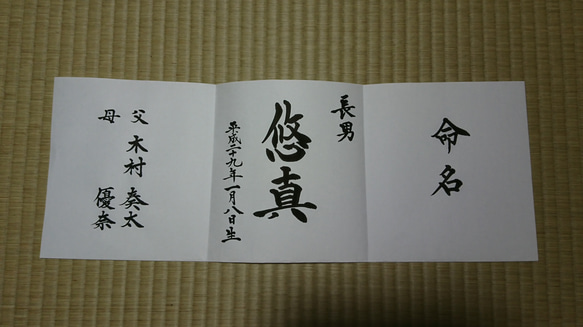 命名
長男
悠真
平成二十九年一月八日生
父 木村 奏太
母 優奈